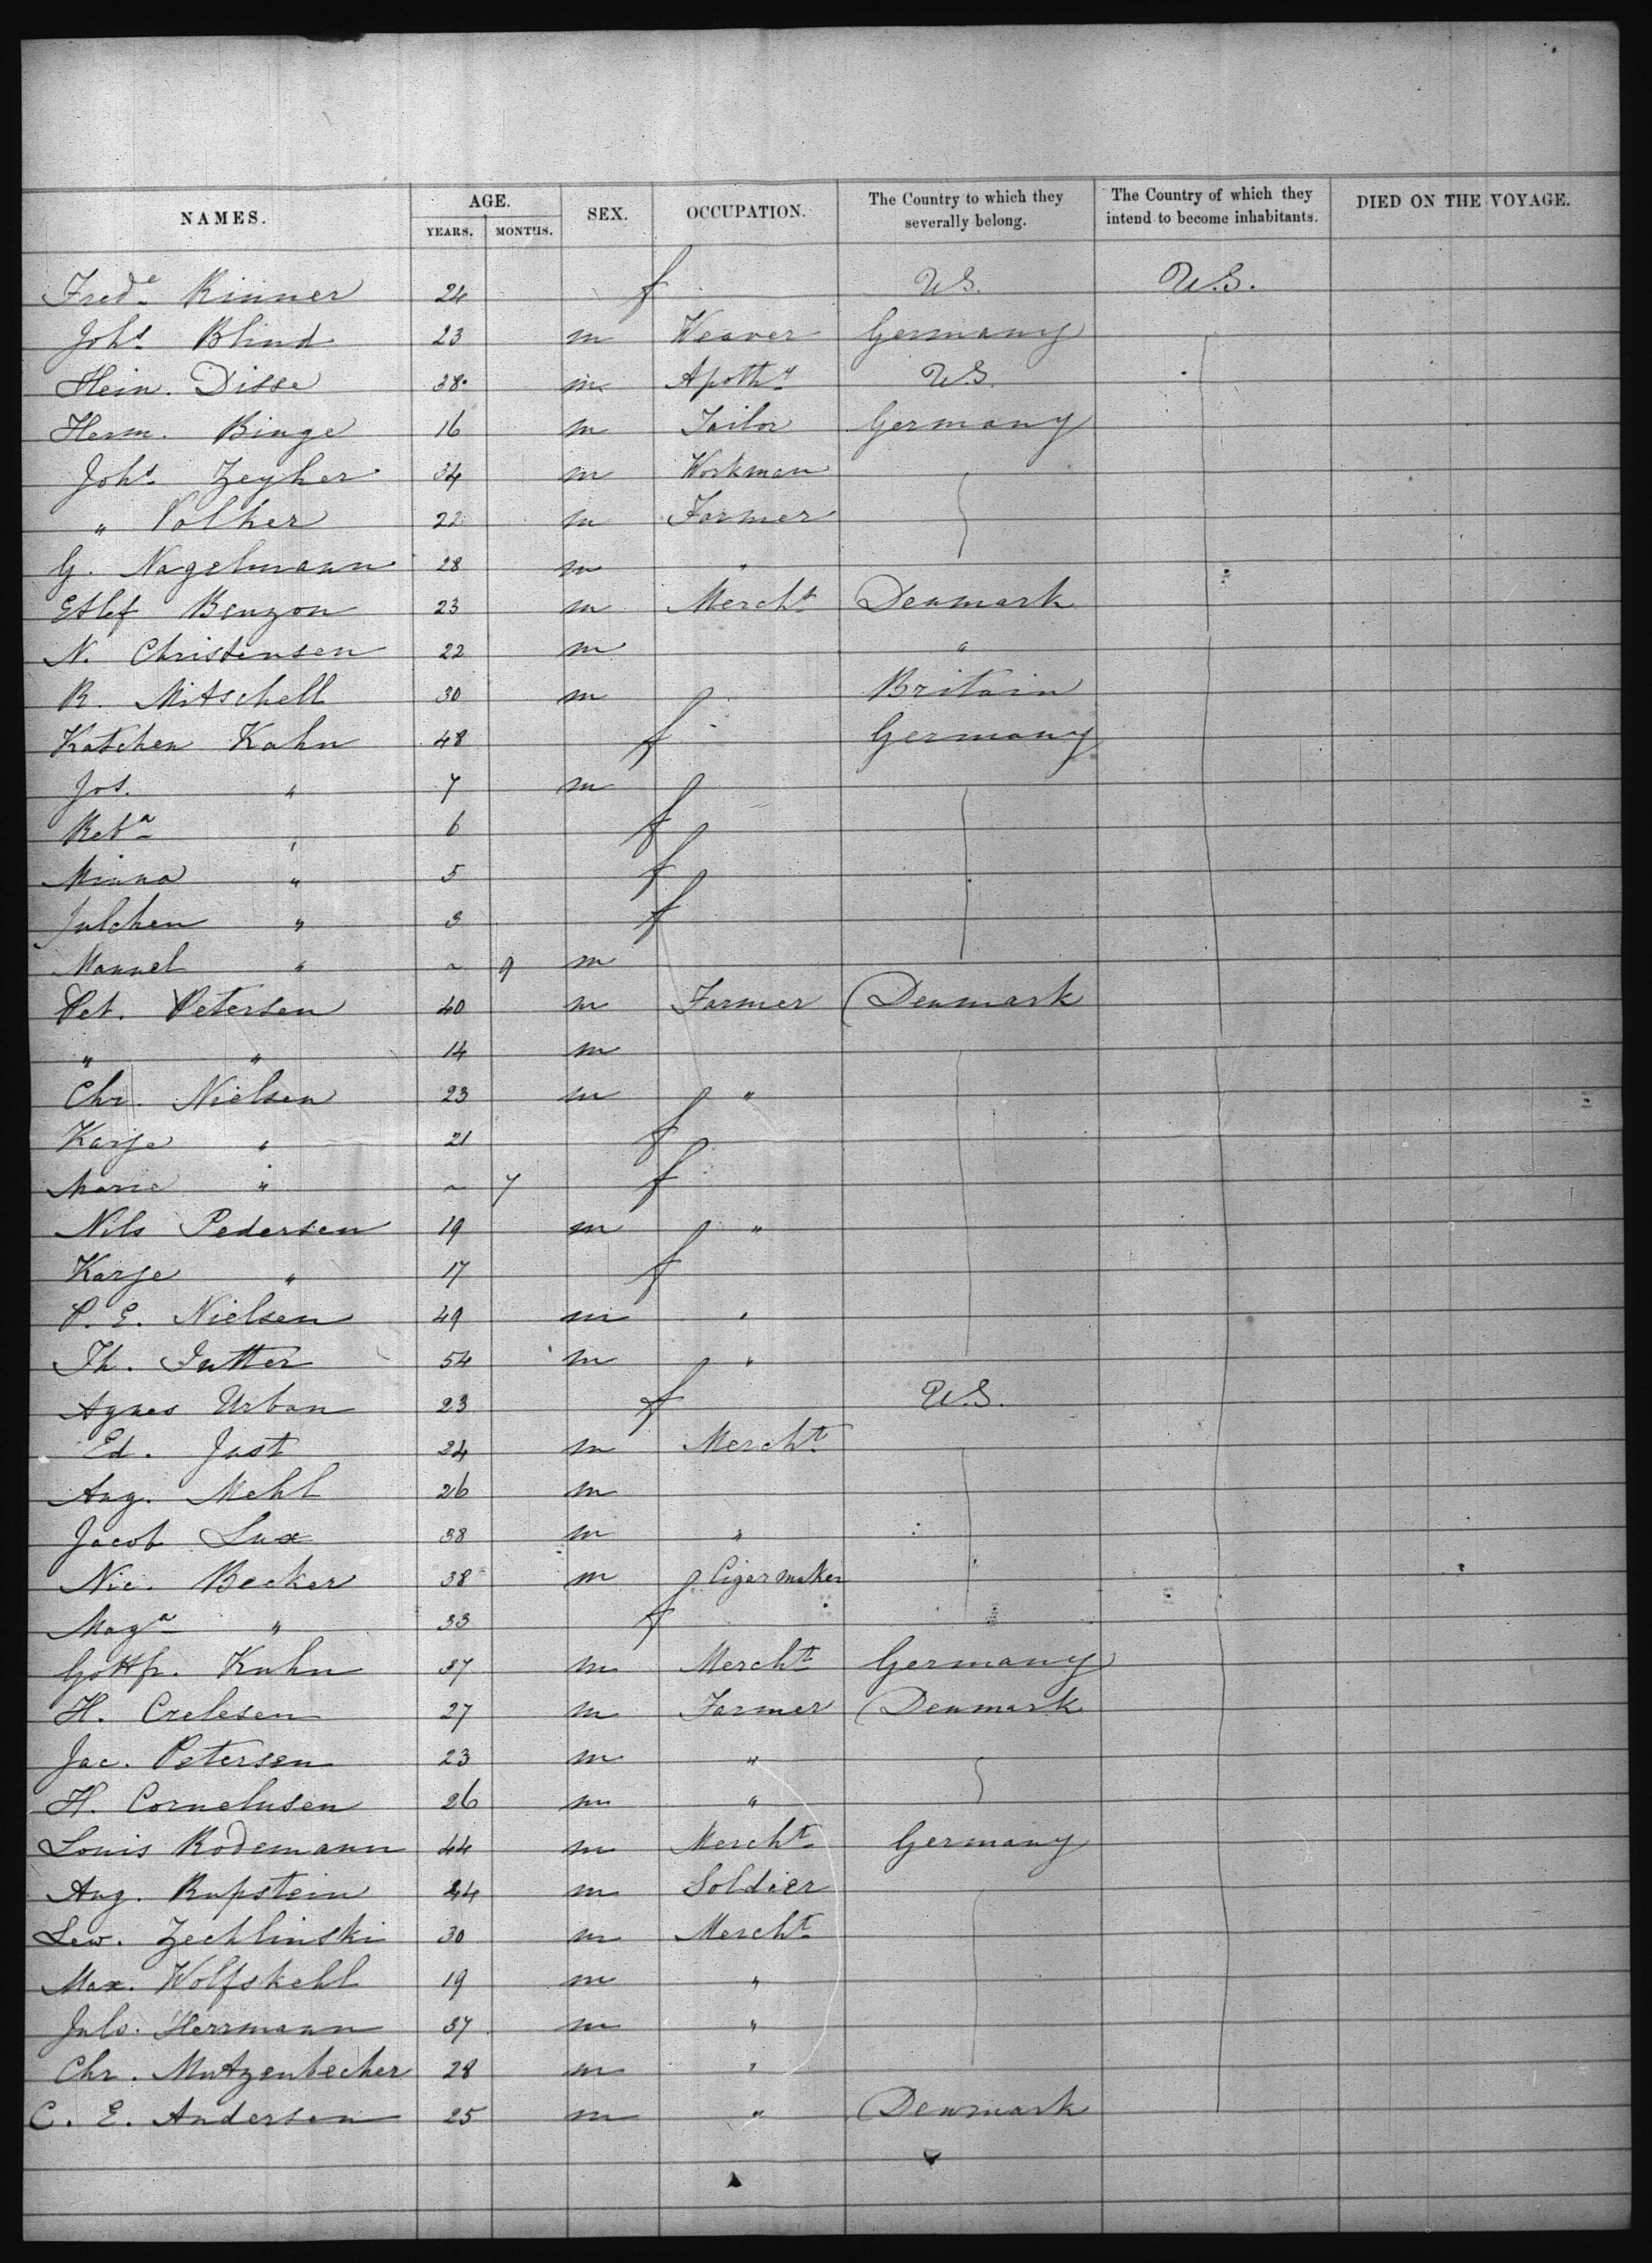 NAMES. AGE. SEX. OCCUPATION. The Country to which they severally belong. The Country of which they intend to become inhabitants. DIED ON THE VOYAGE.
YEARS. MONTHS.
Fredᵉ Rinner 24 f U.S. U.S.
Johˢ Blind 23 m Weaver Germany
Hein. Disse 38 m Apothʸ U.S.
Herm. Binge 16 m Tailor Germany
Johˢ Zeyher 34 m Workman
" Volker 22 m Farmer
G. Nagelmann 28 m "
Etlef Benzon 23 m Merchᵗ Denmark
N. Christensen 22 m "
R. Mitschell 30 m Britain
Katchen Kahn 48 f Germany
Jos. " 7 m
Rebᵃ " 6 f
Minna " 5 f
Julchen " 3 f
Manuel " ~ 9 m
Pet. Petersen 40 m Farmer Denmark
" " 14 m
Chr. Nielsen 23 m "
Karje " 21 f
Marie " ~ 7 f
Nils Pedersen 19 m "
Karje " 17 f
P. E. Nielsen 49 m "
Th. Jutter 54 m "
Agnes Urban 23 f U.S.
Ed. Just 24 m Merchᵗ
Aug. Mehl 26 m
Jacob Lux 38 m "
Nic. Becker 38 m Cigarmaker
Magᵃ " 33 f
Gottfr. Kuhn 37 m Merchᵗ Germany
H. Crelesen 27 m Farmer Denmark
Jac. Petersen 23 m "
H. Cornelusen 26 m "
Louis Rodemann 44 m Merchᵗ Germany
Aug. Rupstein 24 m Soldier
Lew. Zechlinski 30 m Merchᵗ
Max. Wolfskehl 19 m "
Juls. Herrmann 37 m "
Chr. Mutzenbecher 28 m "
C. E. Andersen 25 m " Denmark